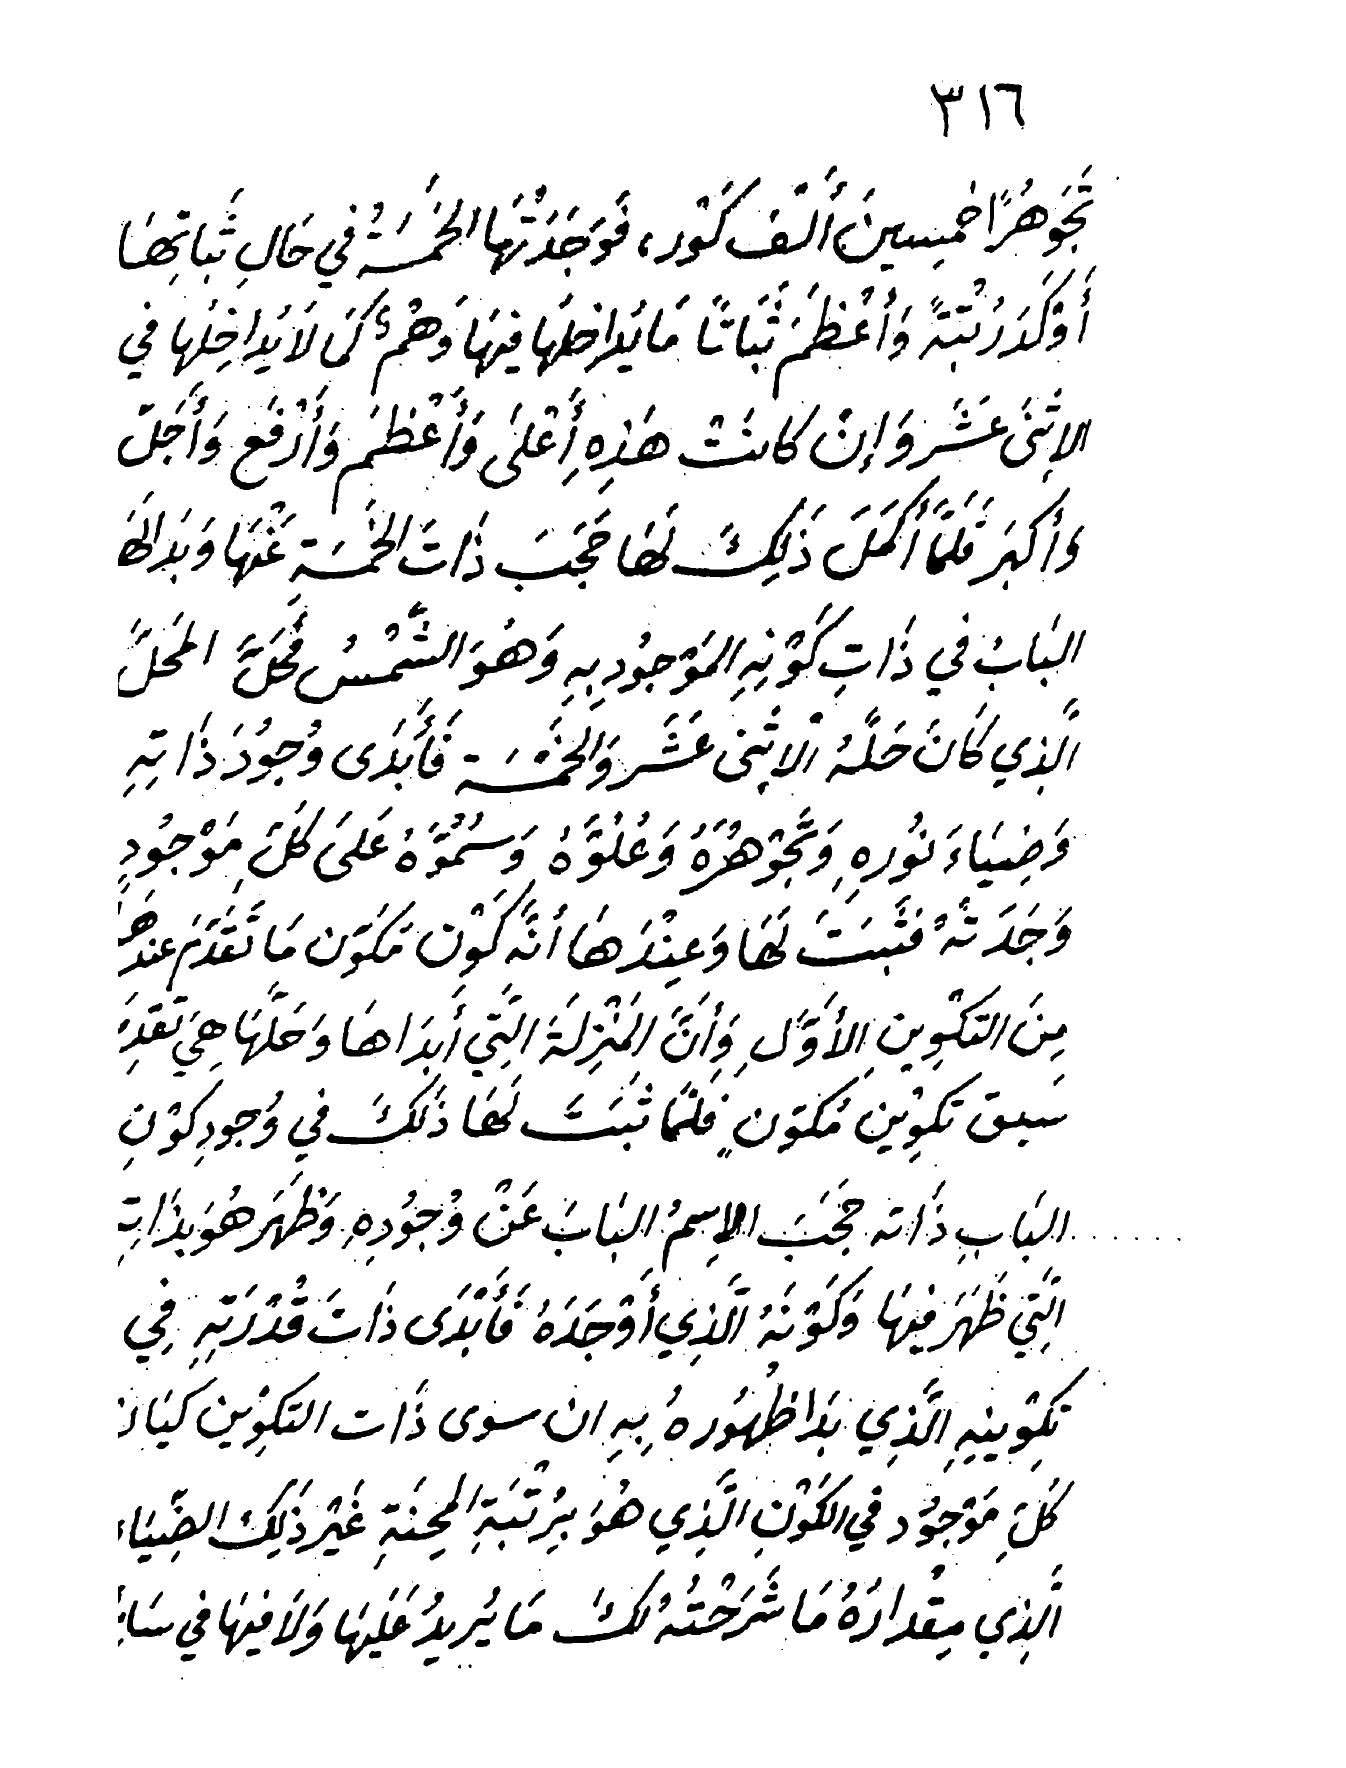 ٣١٦
تَجَوْهُرًا خَمِسينَ أَلْف كَوْر، فَوَجَدَتْهَا الخَمْسَةُ في حَالِ ثَبَاتِهَا
أَوْكَدَ رُتْبَةً وَأَعْظَمَ ثَبَاتًا مَا يُدَاخِلهَا فيهَا وَهْمٌ كَمَا لاَ يُدَاخِلُها في
الاِثْنَى عَشَر وَإِنْ كانَتْ هَذِهِ أَعْلَى وَأَعْظَمَ وَأَرْفَع وَأَجَلّ
وَأَكبَر فَلَمَّا أَكْمَلَ ذَلِكَ لَهَا حَجَبَ ذَاتَ الخَمْسَةِ عَنْهَا وَبَدَا لَهَا
البَابُ في ذَاتِ كَوْنِهِ المَوْجُودِ بِهِ وَهُوَ الشَّمْسُ فَحَلَّ المَحَلَّ
الَّذِي كَانَ حَلَّهُ الْاثْنى عَشَر وَالخَمْسَة فَأَبْدَى وُجُودَ ذَاتِهِ
وَضِيَاءَ نُورِهِ وَتَجَوْهُرَهُ وَعُلُوَّهُ وَسُمُوَّهُ عَلَى كُلِّ مَوْجُودٍ
وَجَدَتْهُ فَثَبَتَ لَهَا وَعِنْدَهَا أَنَّه كَوْن مُكَوَّن مَا تَقَدَّمَ عِندَهَا
مِنَ التَكْوِينِ الأَوَّلِ وَأَنَّ المَنْزِلَةَ الَّتِي أَبدَاهَا وَحَلَّهَا هِيَ تَقَدِ
سَبق تكوْين مُكوَّنٍ فَلمَّا ثَبَتَ لَهَا ذَلكَ في وُجودِ كوْنِ
البَابِ ذَاته حَجَبَ الاِسمُ البَابَ عَنْ وُجُودِهِ وَظَهَر هُوَ بذَاتِهِ
الَّتِي ظَهَرَ فيهَا وَكَوْنَهُ الَّذِي أَوْجَدَهُ فَأَبْدَى ذَاتَ قُدْرَتِهِ فِي
تكِوْينِهِ الَّذِي بَدَا ظُهُورهُ بِهِ ان سوى ذَات التكوِين كيَان
كُلِّ مَوْجُود في الكَوْنِ الَّذِي هُوَ بِرُتْبَةِ المِحنَةِ غَيْر ذَلِكَ الضِّيَاء
الَّذِي مِقْدَارَهُ مَا شَرَحْتُهُ لكَ مَا يُرِيدُ عَلَيهَا وَلاَ فيهَا في سَائِ